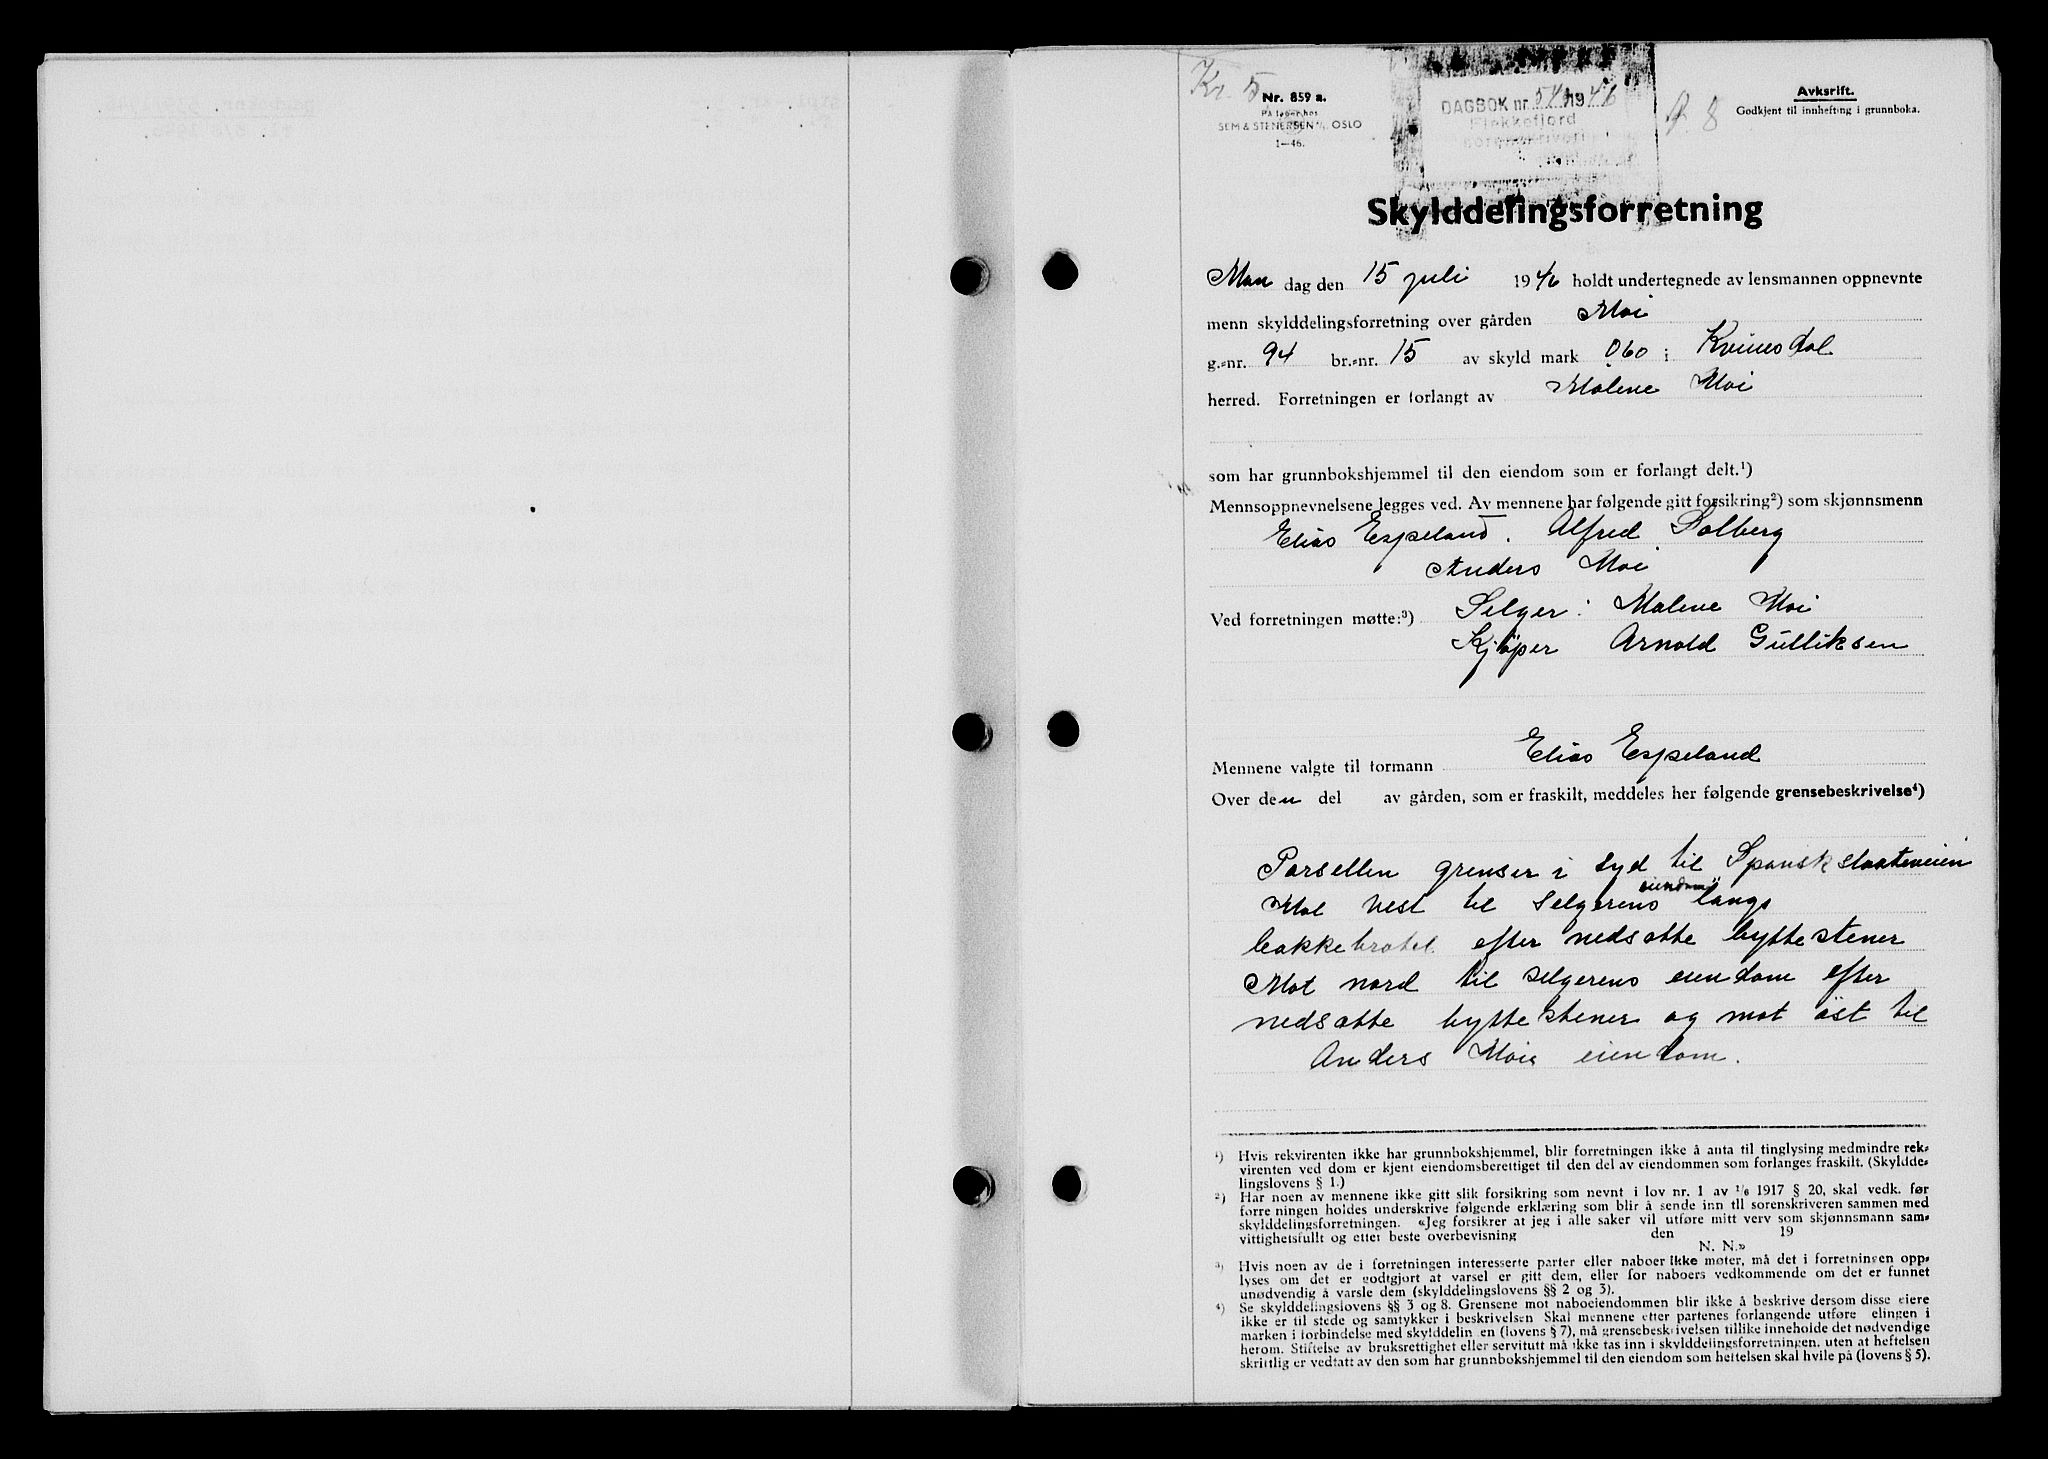 Kr. 5
Nr. 859 a.
På lager hos
SEM & STENERSEN A/S, OSLO
1—46.
DAGBOK nr. 1946
Flekkefjord
sorenskriveri
Avksrift.
Godkjent til innhefting i grunnboka.
Skylddelingsforretning
Man dag den 15 juli 1946 holdt undertegnede av lensmannen oppnevnte
menn skylddelingsforretning over gården Moi
g.-nr. 94 br.-nr. 15 av skyld mark 060 i Kvinesdal
herred. Forretningen er forlangt av Malene Moi
som har grunnbokshjemmel til den eiendom som er forlangt delt.¹)
Mennsoppnevnelsene legges ved. Av mennene har følgende gitt forsikring²) som skjønnsmenn
Elias Espeland. Alfred Solberg
Anders Moi
Ved forretningen møtte:³) Selger: Malene Moi
Kjöper Arnold Gulliksen
Mennene valgte til formann Elias Espeland
Over den del av gården, som er fraskilt, meddeles her følgende grensebeskrivelse⁴)
Parsellen grenser i syd til
Mot vest til Selgerens eiendom langs
bakke efter nedsatte byttestener
Mot nord til selgerens eiendom efter
nedsatte byttestener og mot öst til
Anders Mois eiendom.
¹) Hvis rekvirenten ikke har grunnbokshjemmel, blir forretningen ikke å anta til tinglysing medmindre rek-
virenten ved dom er kjent eiendomsberettiget til den del av eiendommen som forlanges fraskilt. (Skyldde-
lingslovens § 1.)
²) Har noen av mennene ikke gitt slik forsikring som nevnt i lov nr. 1 av 1/6 1917 § 20, skal vedk. før
forre ningen holdes underskrive følgende erklæring som blir å sende inn til sorenskriveren sammen med
skylddelingsforretningen. «Jeg forsikrer at jeg i alle saker vil utføre mitt verv som skjønnsmann sam-
vittighetsfullt og etter beste overbevisning den 19
N. N.»
³) Hvis noen av de i forretningen interesserte parter eller naboer ikke møter, må det i forretningen opp-
lyses om det er godtgjort at varsel er gitt dem, eller for naboers vedkommende om det er funnet
unødvendig å varsle dem (skylddelingslovens §§ 2 og 3).
⁴) Se skylddelingslovens §§ 3 og 8. Grensene mot naboeiendommen blir ikke å beskrive dersom disse eiere
ikke er til stede og samtykker i beskrivelsen Skal mennene etter partenes forlangende utføre elingen i
marken i forbindelse med skylddelin en (lovens § 7), må grensebeskrivelsen tillike inneholde det nødvendige
herom. Stiftelse av bruksrettighet eller servitutt må ikke tas inn i skylddelingsforretningen, uten at heftelsen
skrittlig er vedtatt av den som har grunnbokshjemmel til den eiendom som heftelsen skal hvile på (lovens § 5).